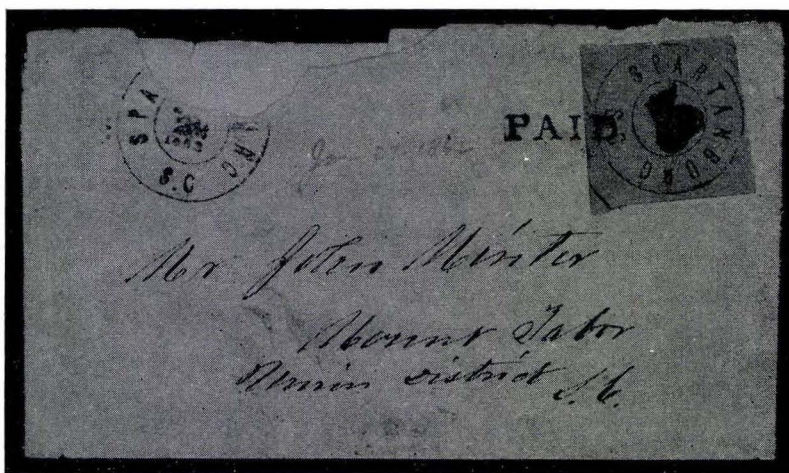 SPARTANBURG
S.C
PAID
SPARTANBURG
Mr John Minter
Mount Tabor
Union District S.C.